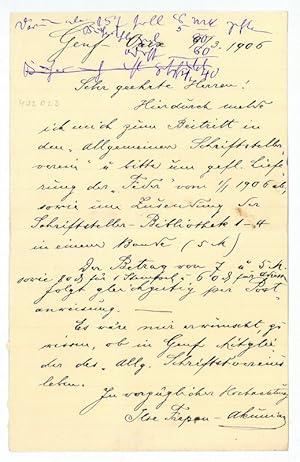 Genf 1906
Sehr geehrte Herren!
Hierdurch melde
ich mich zum Beitritt in
den "Allgemeinen Schriftsteller
verein" u bitte um gefl. Liefe
rung der "Feder" vom 1/1 1906 ab,
sowie um Zusendung der
Schriftsteller-Bibliothek 1-4
in einem Bande (5 M)
Der Betrag von 7 u. 5 M
sowie für 1 60 für
folgt gleichzeitig per Post
anweisung.
Es wäre mir erwünscht zu
wissen, ob in Genf Mitglie
der des "Allg. Schriftst.vereins
leben.
In vorzüglicher Hochachtung
Ilse Frapan-Akunian